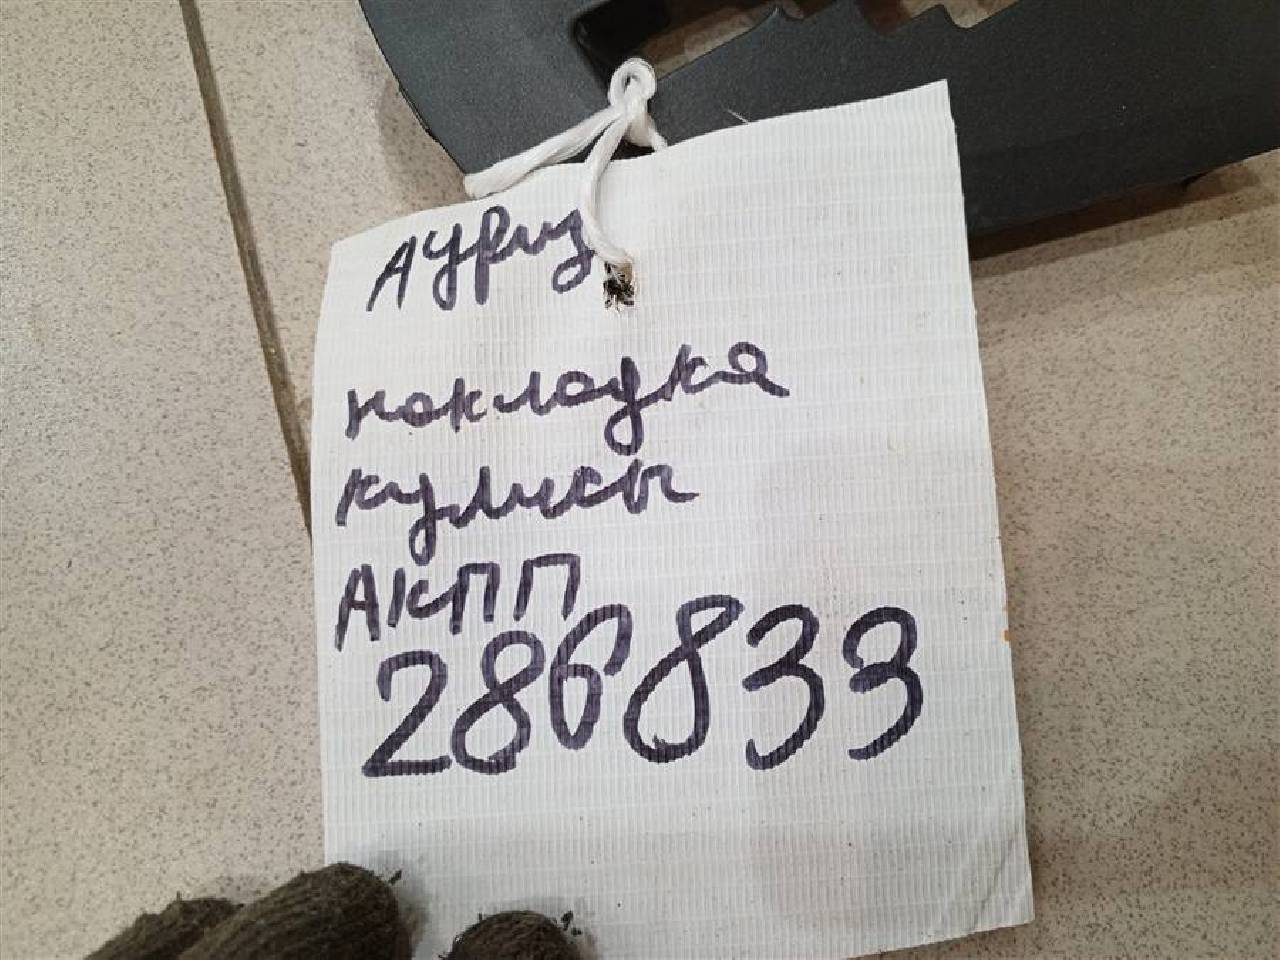 Ауриз
накладка
кулисы
АКПП
286833